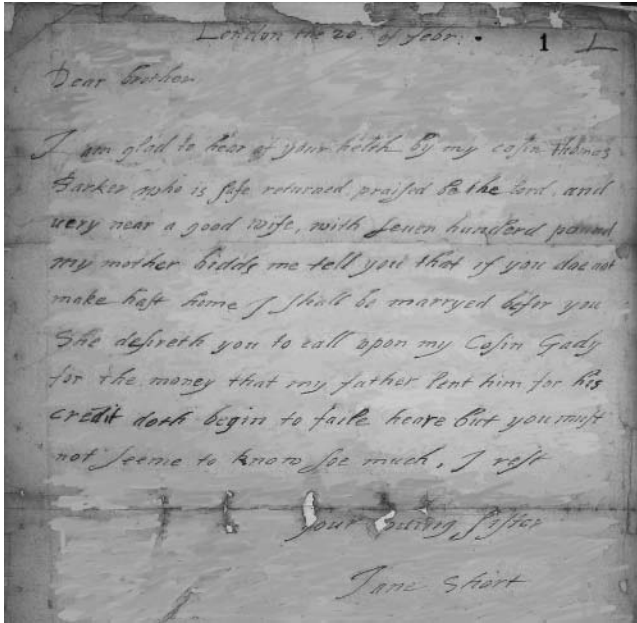 London the 20. of febr: 1 L
Dear brother
I am glad to hear of your helth by my cosin Thomas
Barker who is safe returned praised be the lord. and
uery near a good wife, with seuen hunderd pound
my mother bidds me tell you that if you doe not
make hast home I shall be marryed befor you
She desireth you to call upon my Cosin Gady
for the money that my father lent him for his
credit doth begin to faile heare but you must
not seeme to know soe much, I rest
your louing sister
Jane Short